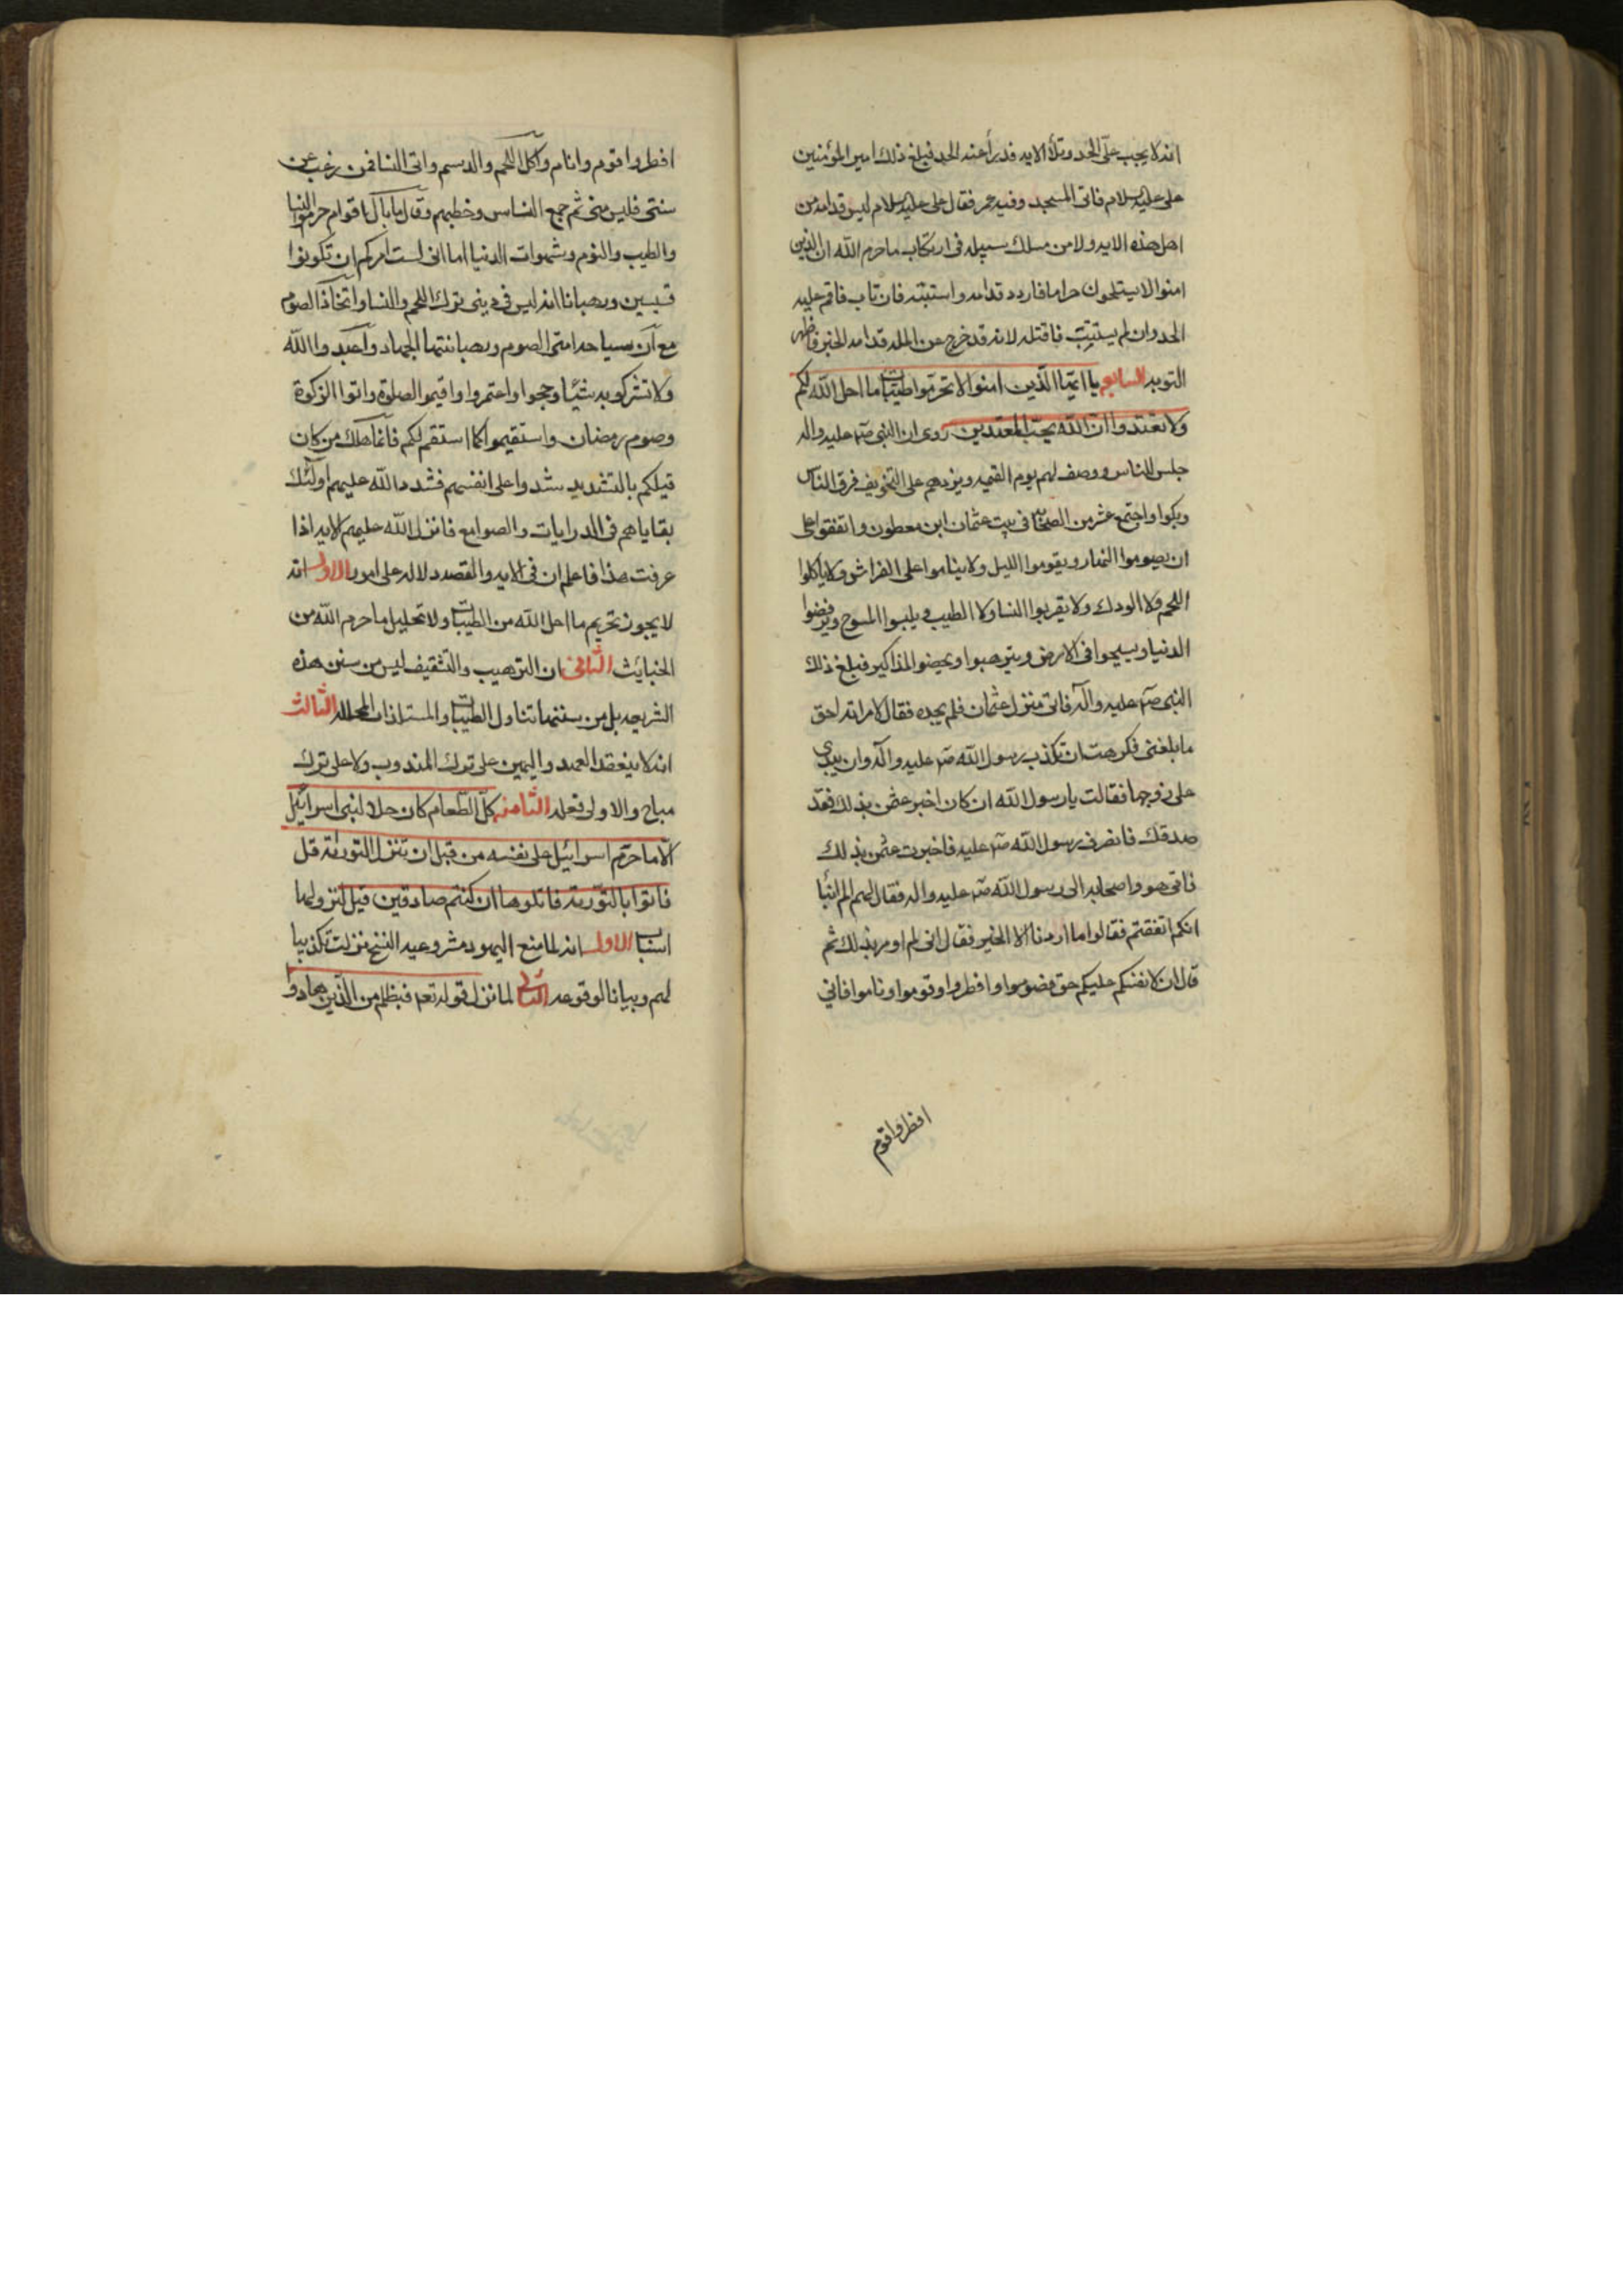 انه لا يجب علىّ الحد وتلا الايه فدرأ عنه الحد فبلغ ذلك امير المؤمنين
على عليه السلام فاتى المسجد وفيه عمر فقال على عليه السلام ليس قدامه من
اهل هذه الايه ولا من سلك سبيله فى ارتكاب ما حرم الله ان الذين
امنوا لا يستحلون حراما فاردد قدامه واستتبه فان تاب فاقم عليه
الحد وان لم يستتب فاقتله لانه قد خرج عن المله قدامه الخبر فاظهر
التوبه السابع يا ايها الذين امنوا لا تحرموا طيبات ما احل الله لكم
ولا تعتدوا ان الله يحب المعتدين روى ان النبى صم عليه واله
جلس للناس ووصف لهم يوم القيمه ويزدهم على التخويف فرق الناس
وبكوا واجتمع عشر من الصحابه فى بيت عثمان ابن مظعون واتفقوا على
ان يصوموا النهار ويقوموا الليل ولا يناموا على الفراش ولا ياكلوا
اللحم ولا الودك ولا يقربوا النسا ولا الطيب ويلبسوا المسوح ويرفضوا
الدنيا ويسيحوا فى الارض ويترهبوا ويخصوا المذاكير فبلغ ذلك
النبى صم عليه وآله فاتى منزل عثمان فلم يجده فقال لامراته احق
ما بلغنى فكرهت ان تكذب رسول الله صم عليه وآله وان تبدى
على زوجها فقالت يا رسول الله ان كان اخبر عثمن بذلك فقد
صدقك فانصرف رسول الله صم عليه فاخبرت عثمن بذلك
فاتى هو واصحابه الى رسول الله صم عليه واله فقال لهم الم انبأ
انكم اتفقتم فقالوا ما اردنا الا الخير فقال انى لم اومر بذلك ثم
قال ان لانفسكم عليكم حق فصوموا وافطروا وقوموا وناموا فانى
افطروا قوم
افطروا قوم وانام واكل اللحم والدسم واتى النسا فمن رغب عن
سنتى فليس منى ثم جمع الناس وخطبهم وقال ما بال اقوام حرموا النسا
والطيب والنوم وشهوات الدنيا اما انى لست امركم ان تكونوا
قسيسين ورهبانا انه ليس فى دينى ترك اللحم والنسا واتخاذ الصوم
مع ان سياحه امتى الصوم ورهبانتها الجهاد واعبدوا الله
ولا تشركو به شيئا وحجوا واعتمروا واقيموا الصلوة واتوا الزكوة
وصوم رمضان واستقيموا كما استقم لكم فانما هلك من كان
قبلكم بالتشديد شدوا على انفسهم فشدد الله عليهم اولئك
بقاياهم فى الدرايات والصوامع فانزل الله عليهم الايه اذا
عرفت هذا فاعلم ان فى الايه والقصه دلاله على امور الاول انه
لا يجوز تحريم ما احل الله من الطيبات ولا تحليل ما حرم الله من
الخبايث الثانى ان الترهيب والتثقيف ليس من سنن هذه
الشريعه بل من سننها تناول الطيبات والمستلذات المحلله الثالث
انه لا ينعقد العهد واليمين على ترك المندوب ولا على ترك
مباح والاولى فعله الثامن كل الطعام كان حلا لبنى اسرائيل
الا ما حرم اسرائيل على نفسه من قبل ان تنزل التورىة قل
فاتوا بالتورىة فاتلوها ان كنتم صادقين قيل لنزولها
اسباب الاول انه لما منع اليهود مشروعيه النسخ نزلت تكذيبا
لهم وبيانا لوقوعه الثانى لما نزل قوله تعم فبظلم من الذين هادوا